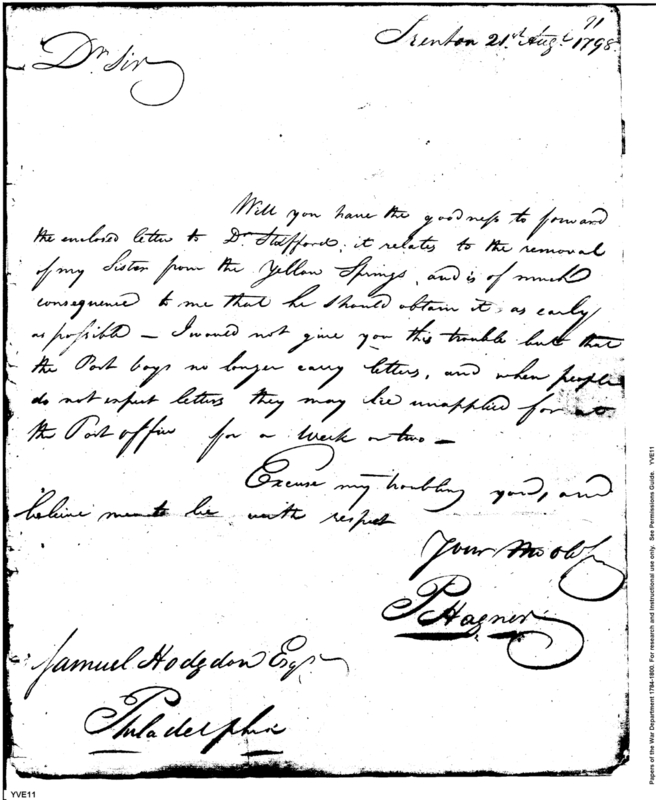 91
Trenton 21st Augt. 1798
Dr. Sir
Will you have the goodness to forward
the enclosed letter to Dr. Stafford; it relates to the removal
of my Sister from the Yellow Springs, and is of much
consequence to me that he should obtain it as early
as possible — I would not give you this trouble but that
the Post boys no longer carry letters, and when people
do not expect letters they may lie unapplied for at
the Post office for a week or two —
Excuse my troubling you, and
believe me to be with respect
Your Mo Ob
P Hagner
Samuel Hodgdon Esqr
Philadelphia
YVE11
Papers of the War Department 1784-1800. For research and instructional use only. See Permissions Guide. YVE11